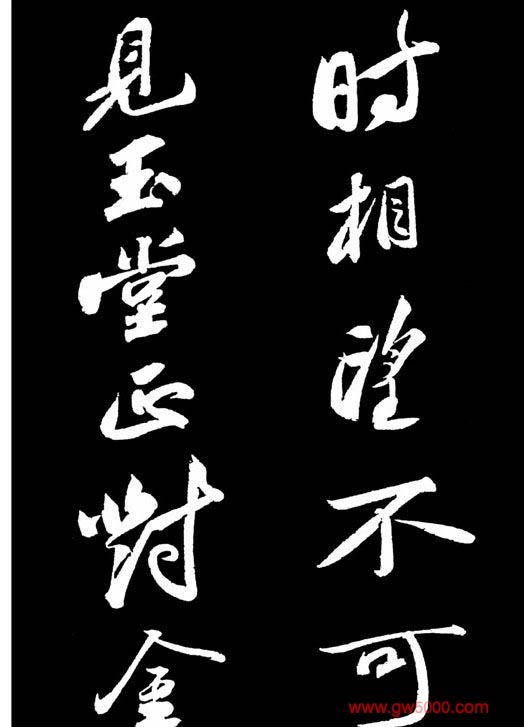 时相望不可
見玉堂正對金
www.gw5000.com